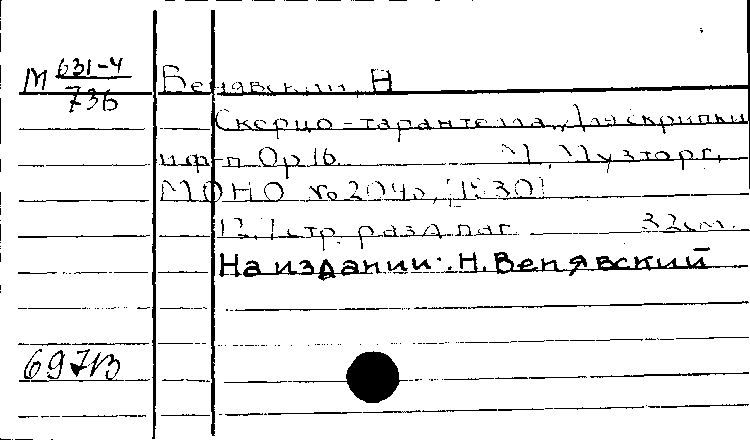 М 631-4/736 Венявский, Н
Скерцо-тарантелла. Для скрипки
и ф-п. Op 16. М., Музторг,
МОНО № 2040, [1930]
12, 1 стр. разд. паг. 32 см.
На издании: Н. Венявский
697В